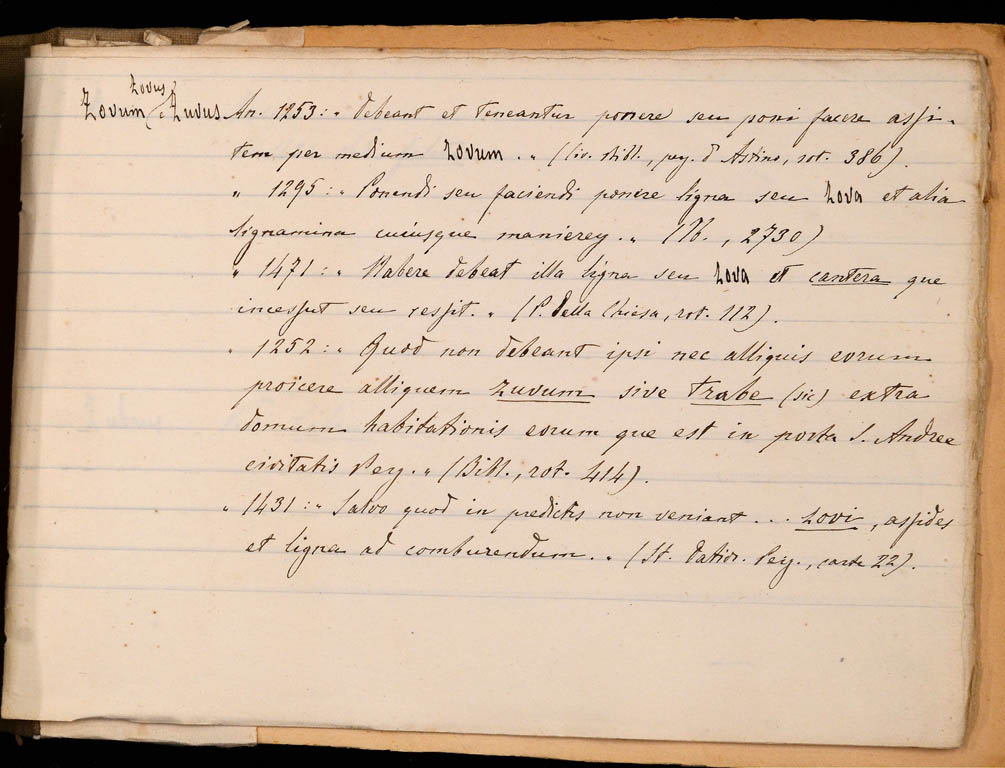 Zovus
Zovum, Zuvus An. 1253: „ Debeant et teneantur ponere seu poni facere assi-
tem per medium zovum. „ (Civ. bibl., perg. d'Astino, rot. 386).
„ 1295: „ Ponendi seu faciendi ponere ligna seu zova et alia
lignamina cuiusque manierey. „ (Ib., 2730)
„ 1471: „ Habere debeat illa ligna seu zova et cantera que
incessut seu ressit. „ (P. Della Chiesa, rot. 112).
„ 1252: „ Quod non debeant ipsi nec alliquis eorum
proicere alliquem zuvum sive trabe (sic) extra
domum habitationis eorum que est in porta S. Andree
civitatis Perg. „ (Bibl., rot. 414).
„ 1431: „ Salvo quod in predictis non veniant ... zovi, assides
et ligna ad comburendum. „ (St. datior. Perg., carta 22).